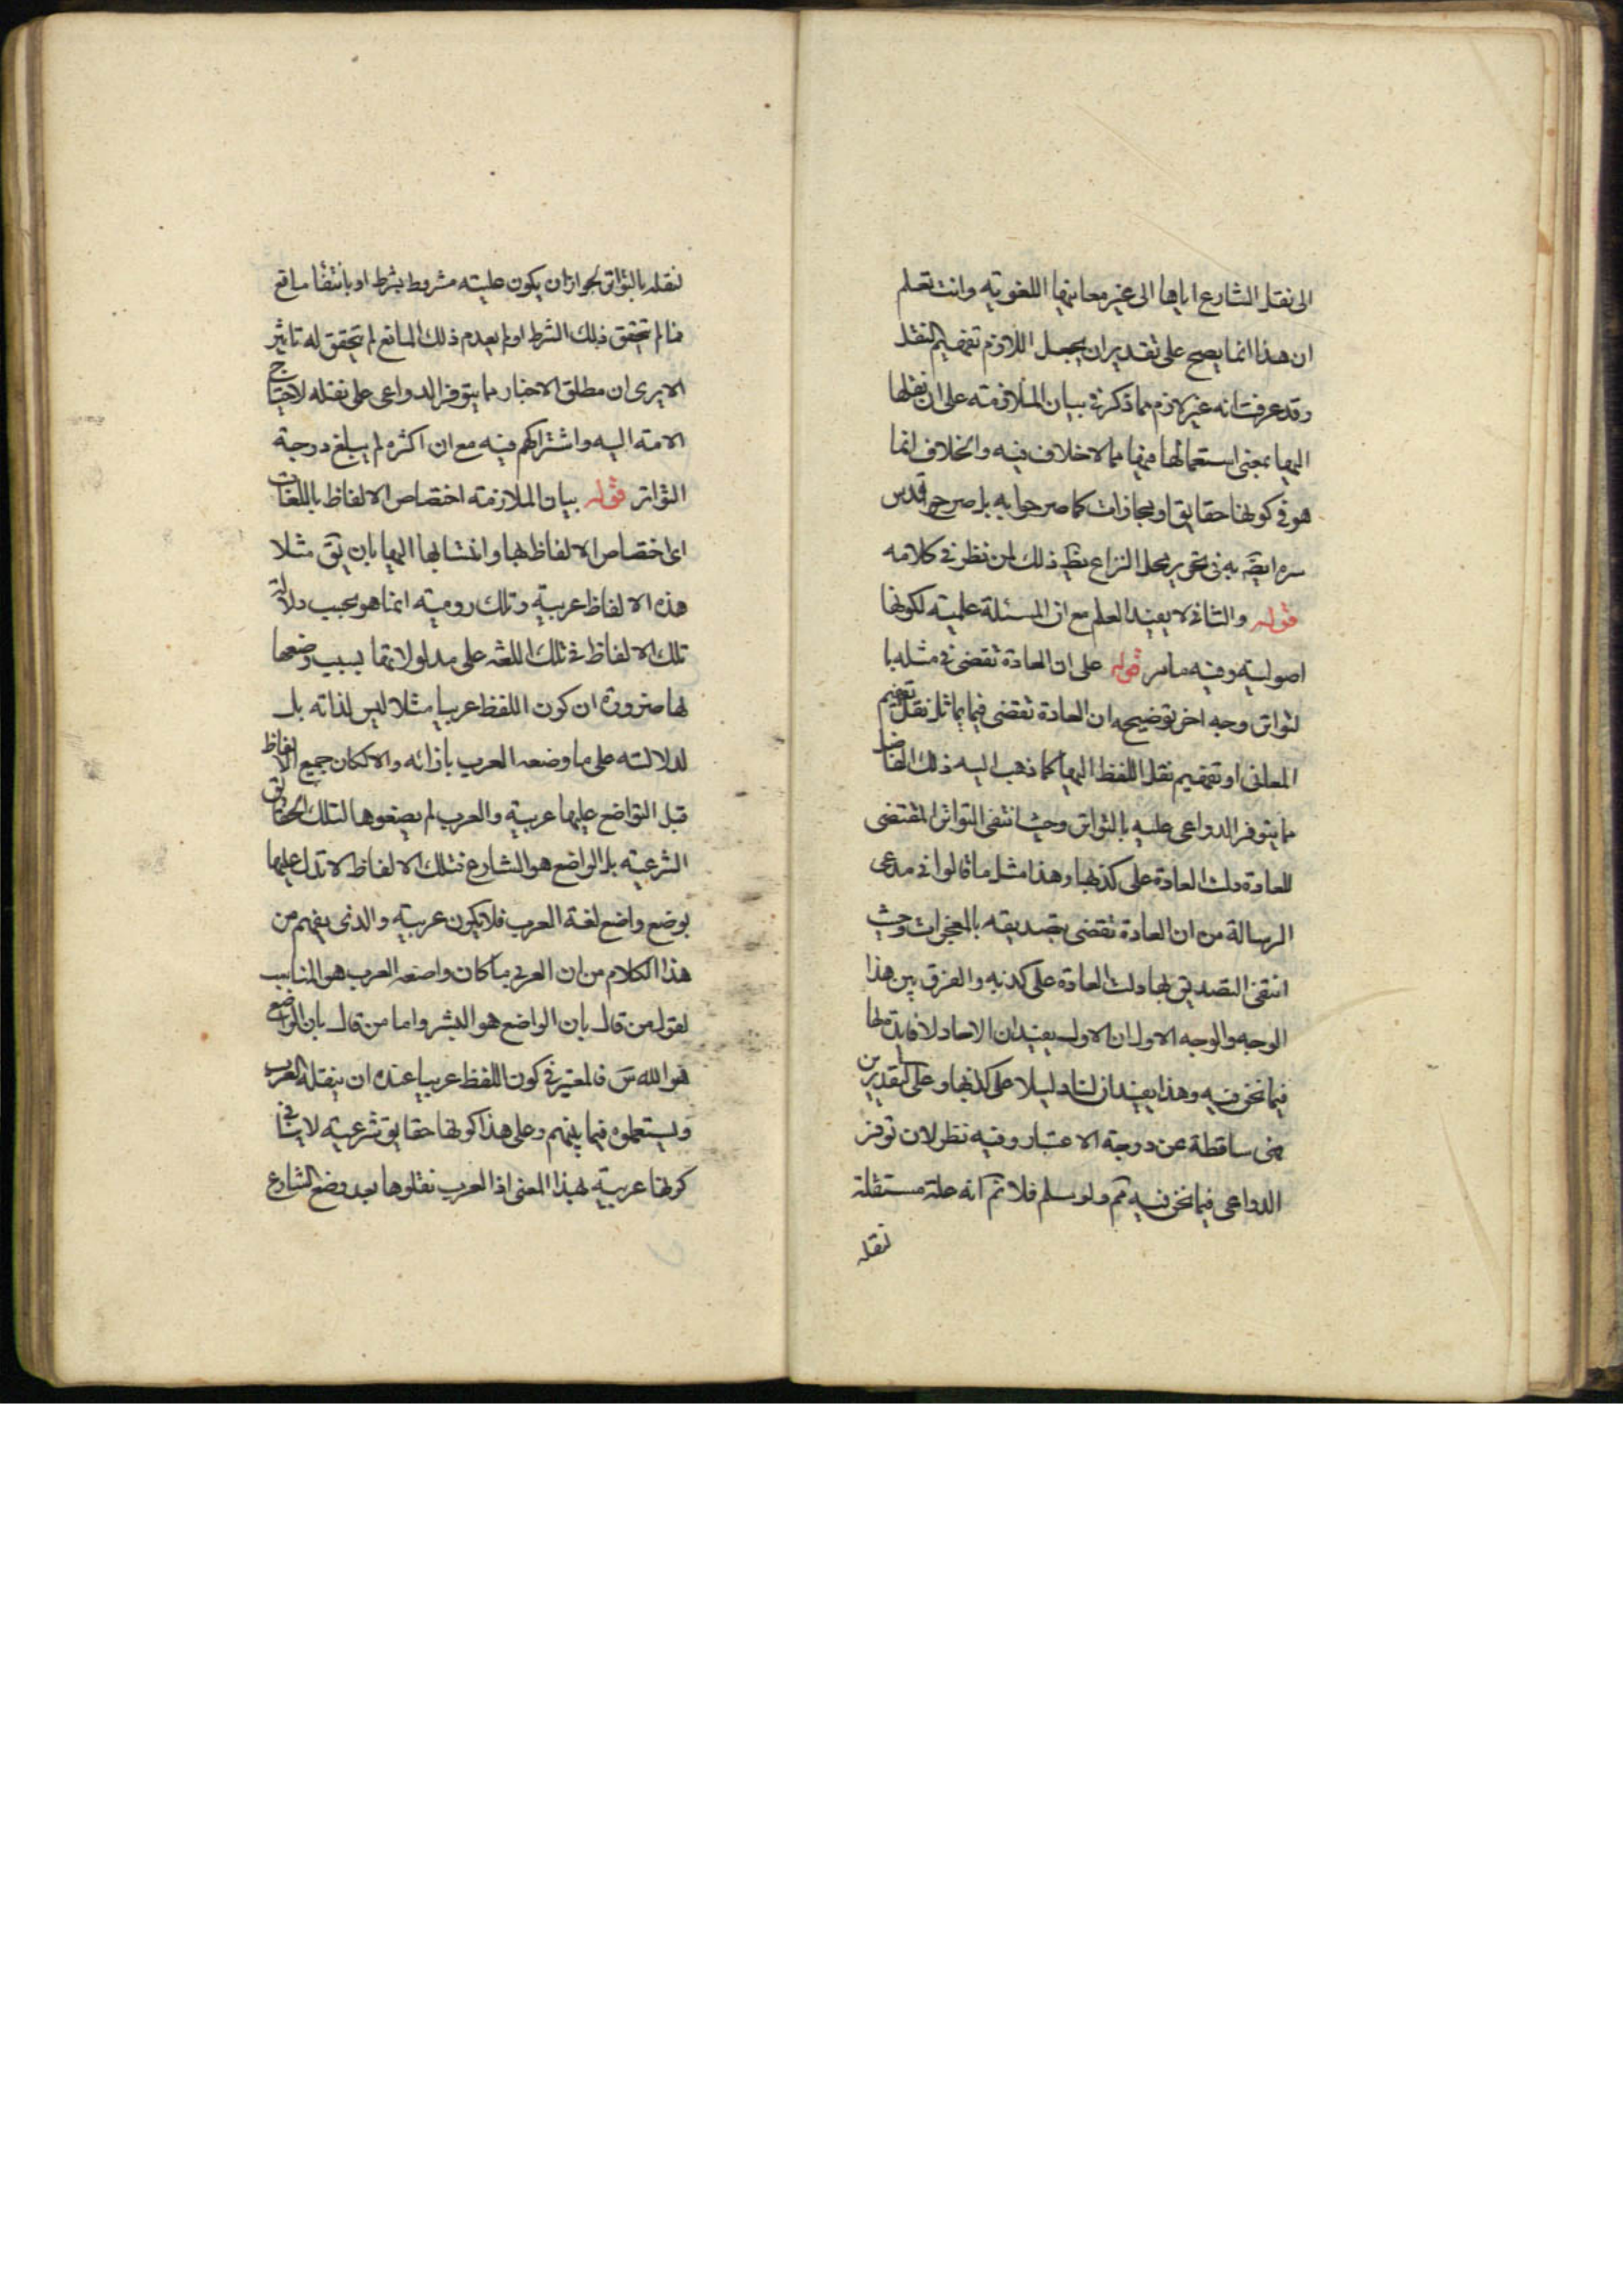 الى نقل الشارع اياها الى غير معانيها اللغوية وانت تعلم
ان هذا انما يصح على تقدير ان يجعل اللازم تفهيم النقل
وقد عرفت انه غير لازم مما ذكر في بيان الملازمة على ان نقلها
اليها بمعنى استعمالها فيها مما لاخلاف فيه والخلاف انما
هو في كونها حقايق او مجازات كما صرحوا به بل صرح قدس
سره ايضَ به في تحرير محل النزاع يظهر ذلك لمن نظر في كلامه
قوله والثاني لا يفيد العلم مع ان المسئلة علمية لكونها
اصولية وفيه ما مر قوله على ان العادة تقضى في مثله با
لتواتر وجه اخر توضيحه ان العادة تقضى فيما يماثل نقل تفهيم
المعانى او تفهيم نقل اللفظ اليها كما ذهب اليه ذلك الفاضل
مما يتوفر الدواعى عليه بالتواتر وحيث انتفى التواتر المقتضى
للعادة دلت العادة على كذبها وهذا مثل ما قالوا في مدعى
الرسالة من ان العادة تقضى بتصديقه بالمعجزات وحيث
انتفى التصديق بها دلت العادة على كذبه والفرق بين هذا
الوجه والوجه الاول ان الاول يفيد ان الاحاد لا فايدة لها
فيما نحن فيه وهذا يفيد ان لنا دليلا على كذبها وعلى التقديرين
هى ساقطة عن درجة الاعتبار وفيه نظر لان توفر
الدواعى فيما نحن فيه مم ولو سلم فلا نم انه علة مستقلة
لنقله
لنقله بالتواتر لجواز ان يكون عليته مشروط بشرط او بانتفا مانع
فما لم يتحقق ذلك الشرط او لم يعدم ذلك المانع لم يتحقق له تاثير
الا يرى ان مطلق الاخبار مما يتوفر الدواعى على نقله لاحتياج
الامة اليه واشتراكهم فيه مع ان اكثره لم يبلغ درجة
التواتر قوله بيان الملازمة اختصاص الالفاظ باللغات
اى اختصاص الالفاظ بها وانتسابها اليها بان يق مثلا
هذه الالفاظ عربية وتلك رومية انما هو بحسب دلالة
تلك الالفاظ في تلك اللغة على مدلولاتها بسبب وضعها
لها ضرورة ان كون اللفظ عربيا مثلا ليس لذاته بل
لدلالته على ما وضعه العرب بازائه والا لكان جميع الالفاظ
قبل التواضع عليها عربية والعرب لم يضعوها لتلك الحقايق
الشرعية بل الواضع هو الشارع فتلك الالفاظ لا تدل عليها
بوضع واضع لغة العرب فلا يكون عربية والذى يفهم من
هذا الكلام من ان العربى ما كان واضعه العرب هو المناسب
لقول من قال بان الواضع هو البشر واما من قال بان الواضع
هو الله تَع فالمعتبر في كون اللفظ عربيا عنده ان ينقله العرب
ويستعملوه فيما بينهم وعلى هذا كونها حقايق شرعية لا ينافى
كونها عربية بهذا المعنى اذ العرب نقلوها بعد وضع الشارع